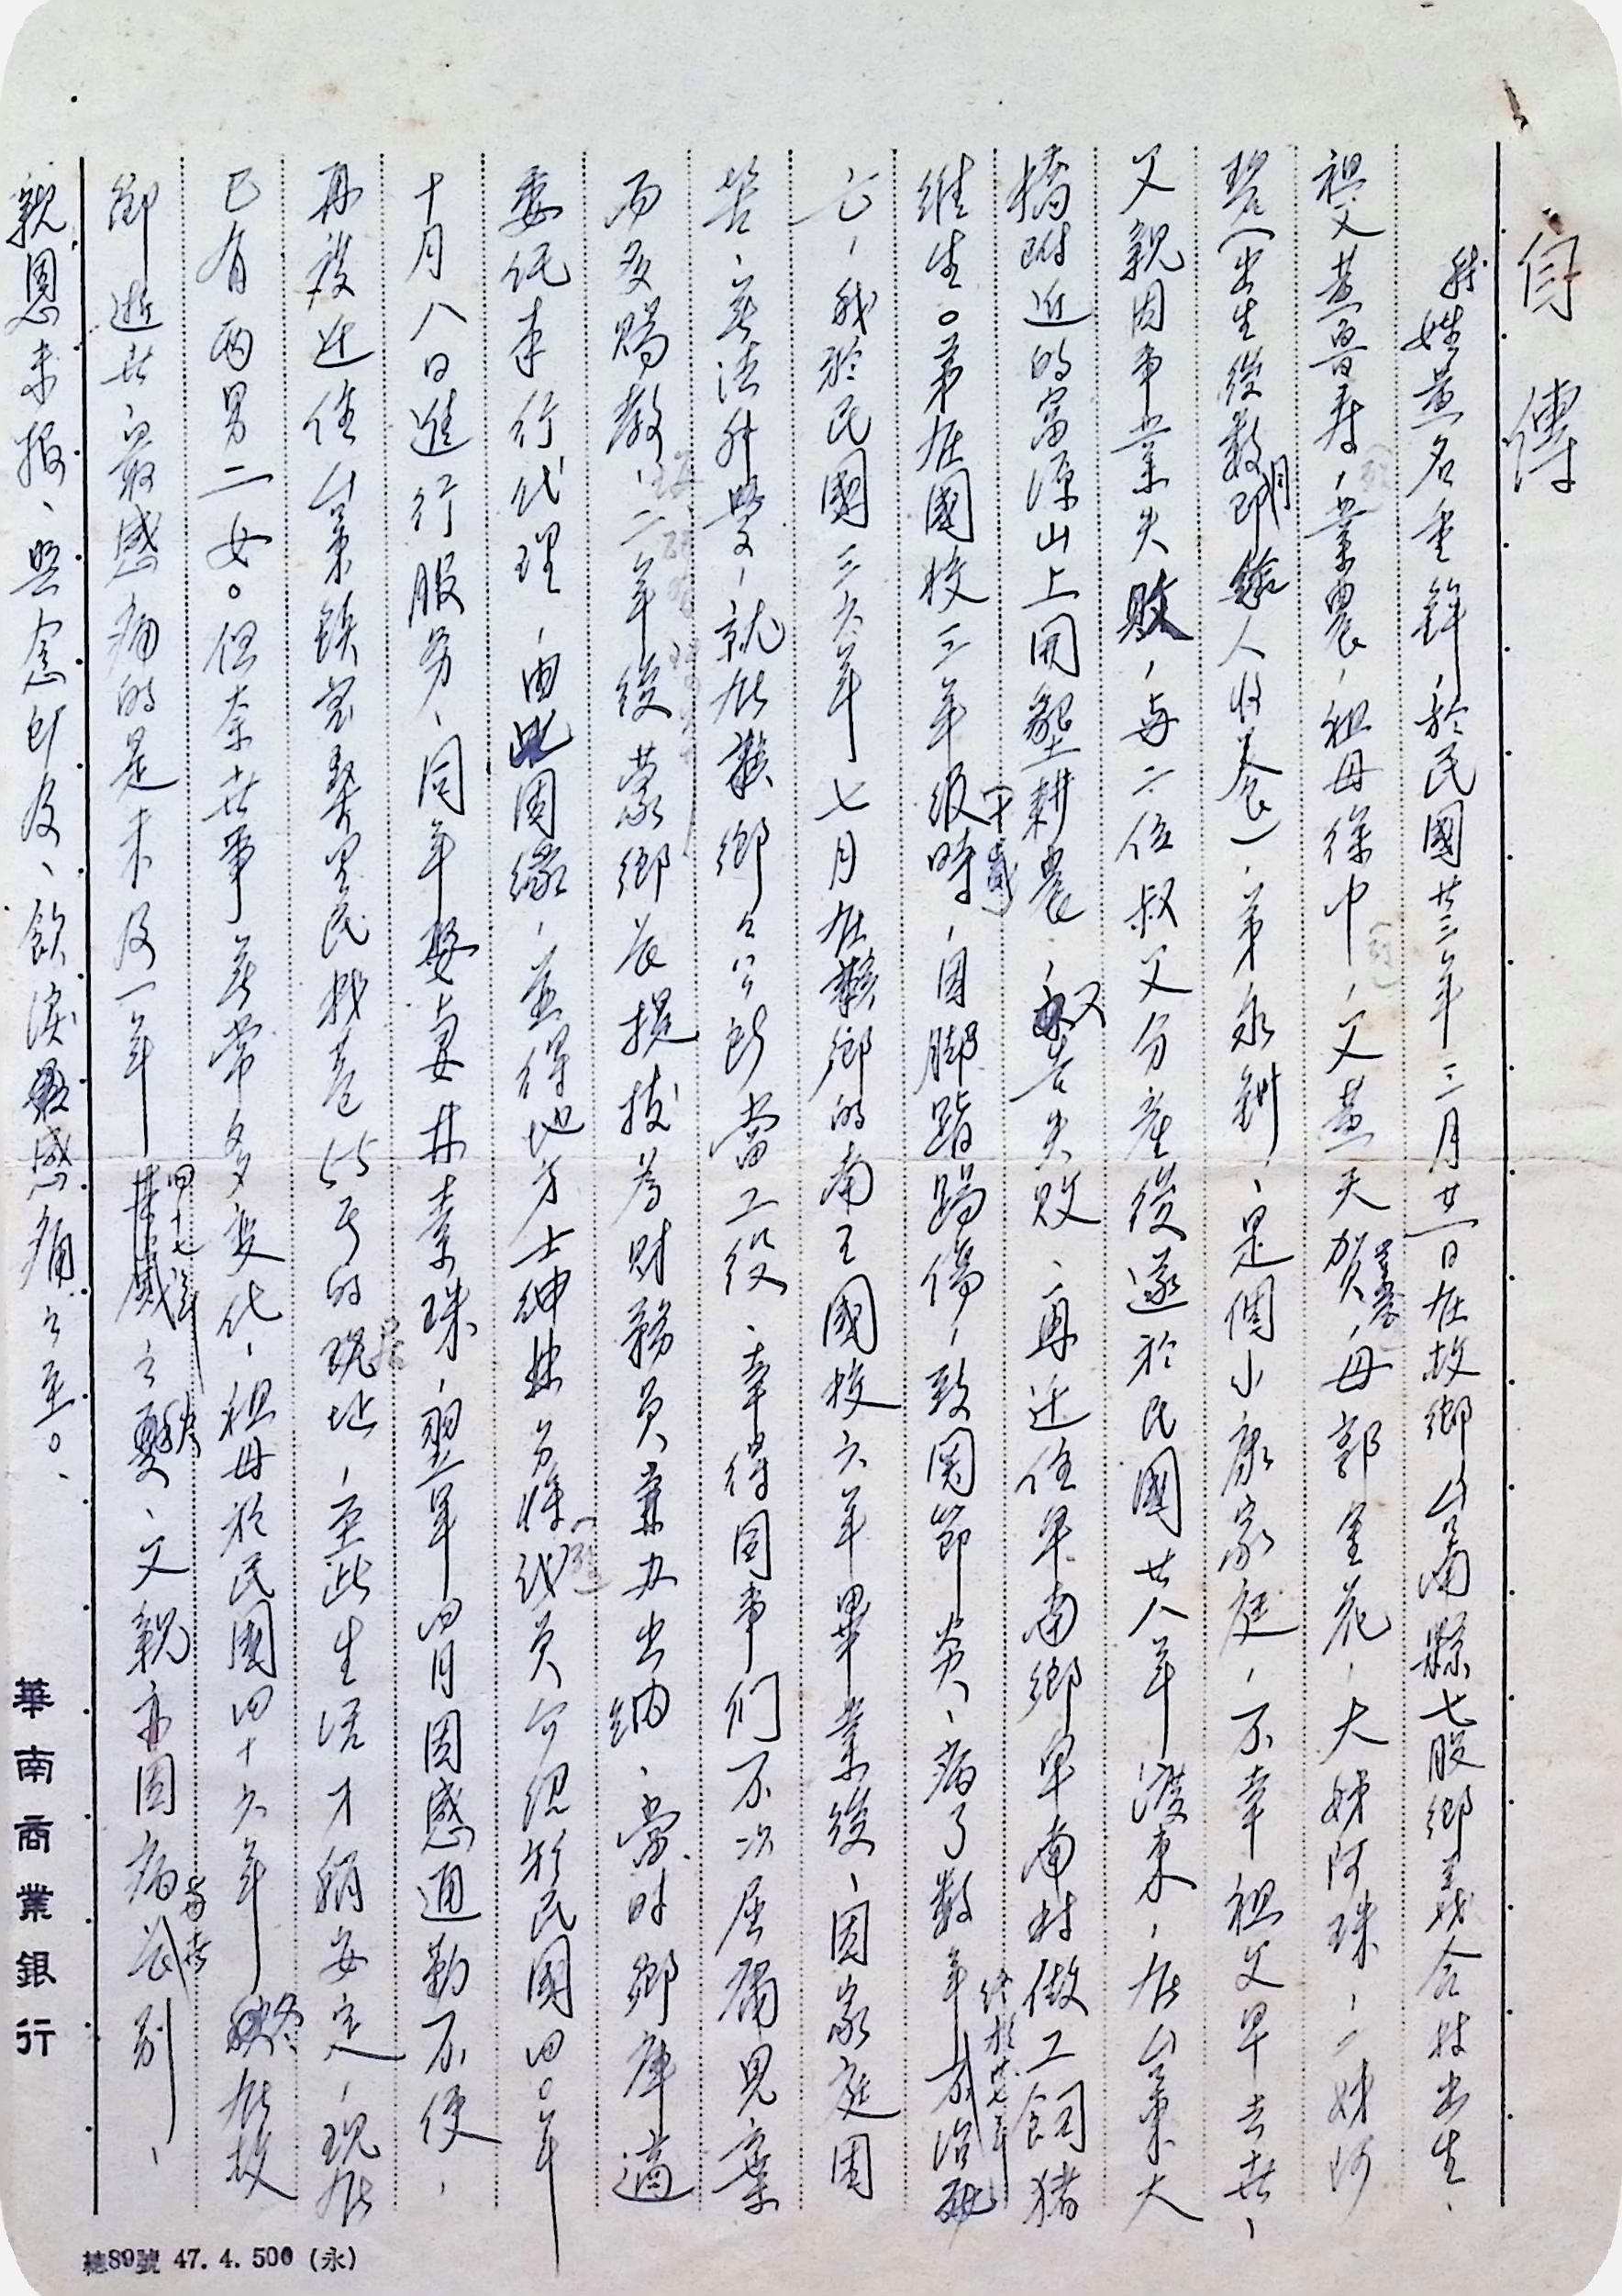 自傳
我姓黃名重鋅，於民國廿三年三月廿一日在故鄉台南縣七股鄉義合村出生、
祖父黃晋寿，業農，祖母徐中，父黃天賀，母郭金花，大姊阿珠，二姊阿
（出生後数月即給人收養）、弟永釧，是個小康家庭，不幸祖父早去世，
父親因事業失敗，与二位叔父分產後遂於民國廿八年渡東，在台東大
橋附近的富源山上開墾耕農，又告失敗、再迁住卑南鄉卑南村做工飼猪
維生。弟在國校三年級時十歲，因脚踏傷，致関節炎、病了数年終於卅七年不治死
亡，我於民國三六年七月在賴鄉的南王國校六年畢業後、因家庭困
苦、無法升學，就在賴鄉公所當工役、幸得同事們不次屈, 見棄
而多賜教，二年後蒙鄉長提拔為財務員兼办出納、當時鄉庫適
委托本行代理，由此因緣，並得地方士紳 介绍於民國四〇年
十月八日進行服务、同年娶妻林素珠，翌年四月因感通勤不便，
再設迁住台東鎮 里民 巷55号的現址，至此生活才稍安定，現在
已有两男二女。但奈世事無常多变化，祖母於民國四十六年冬在故
鄉逝世、最感痛的是未及一年四七年之、父親亦因病与世長別、
親恩未报、每念 及、飲淚感痛之至。
華南商業銀行
總89號 47. 4. 500 (永)